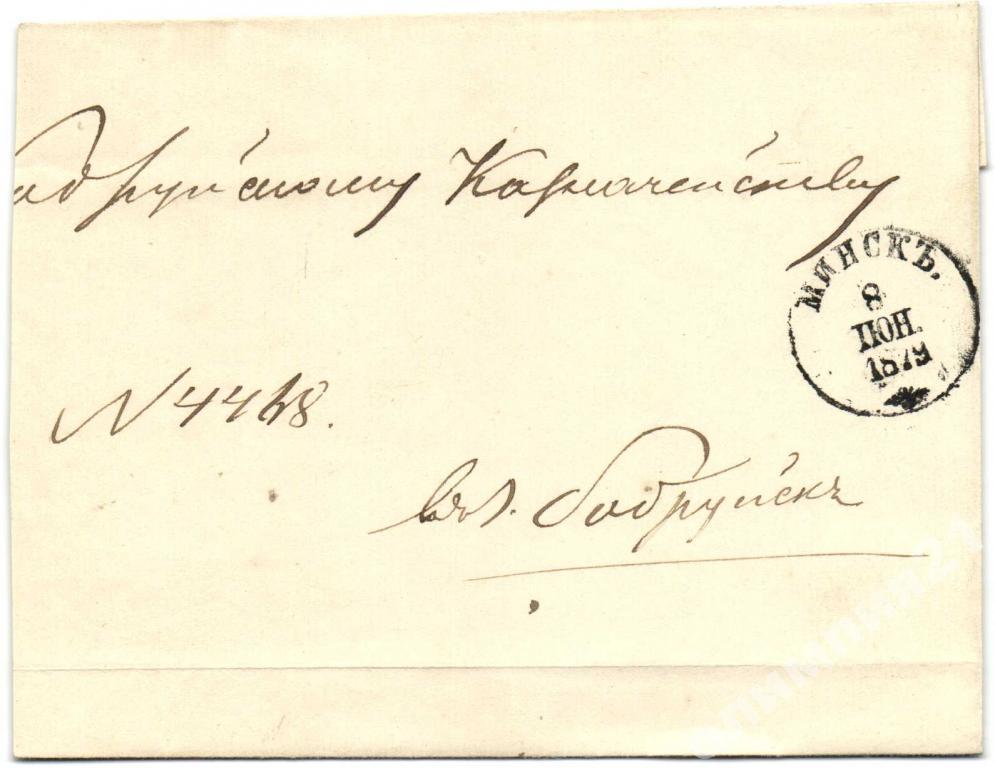 Бобруйскому Казначейству
МИНСКЪ.
8
ІЮН.
1879
N 4468.
въ г. Бобруйскъ
олимпия21